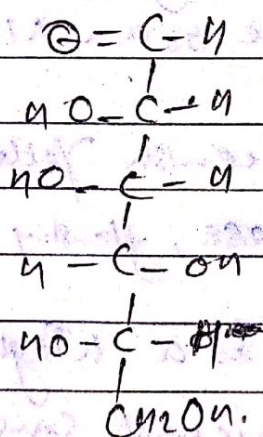 O = C - H
HO - C - H
HO - C - H
H - C - OH
HO - C - H
CH2OH.